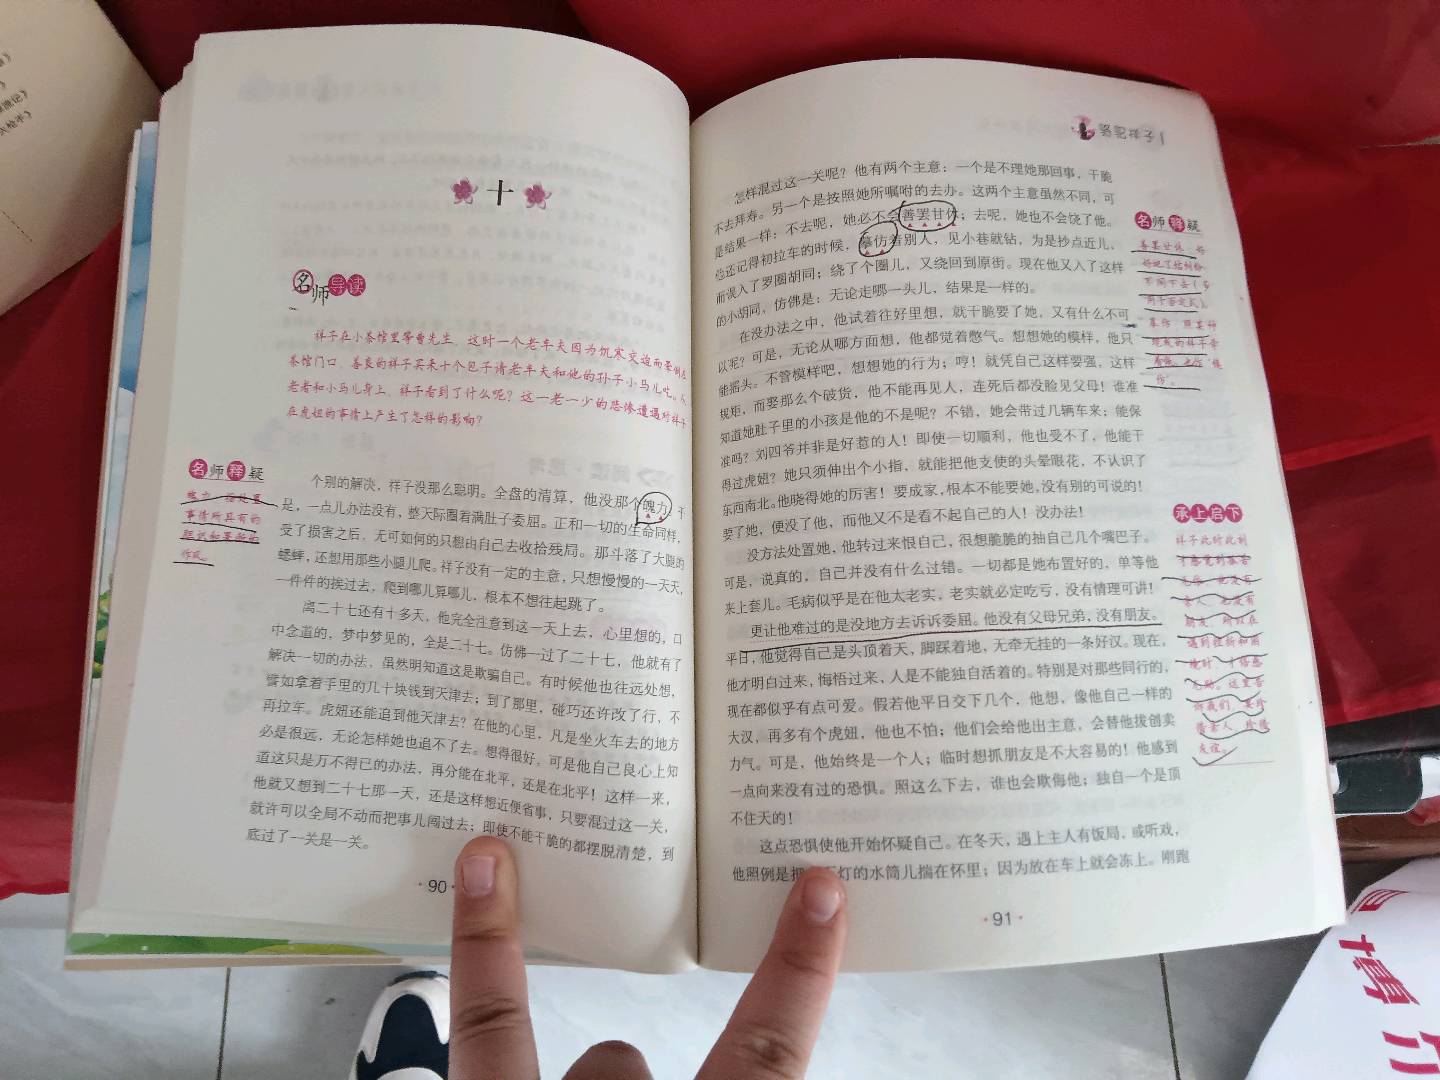 十
名师导读
祥子在小茶馆里等曹先生，这时一个老车夫因为饥寒交迫而晕倒在
茶馆门口，善良的祥子买来十个包子请老车夫和他的孙子小马儿吃。从
老者和小马儿身上，祥子看到了什么呢？这一老一少的悲惨遭遇对祥子
在虎妞的事情上产生了怎样的影响？
名师释疑
魄力：指处置
事情所具有的
胆识和果断的
作风。
个别的解决，祥子没那么聪明。全盘的清算，他没那个魄力。于
是，一点儿办法没有，整天际圈着满肚子委屈。正和一切的生命同样，
受了损害之后，无可如何的只想由自己去收拾残局。那斗落了大腿的
蟋蟀，还想用那些小腿儿爬。祥子没有一定的主意，只想慢慢的一天天，
一件件的挨过去，爬到哪儿算哪儿，根本不想往起跳了。
离二十七还有十多天，他完全注意到这一天上去，心里想的，口
中念道的，梦中梦见的，全是二十七。仿佛一过了二十七，他就有了
解决一切的办法，虽然明知道这是欺骗自己。有时候他也往远处想，
譬如拿着手里的几十块钱到天津去；到了那里，碰巧还许改了行，不
再拉车。虎妞还能追到他天津去？在他的心里，凡是坐火车去的地方
必是很远，无论怎样她也追不了去。想得很好，可是他自己良心上知
道这只是万不得已的办法，再分能在北平，还是在北平！这样一来，
他就又想到二十七那一天，还是这样想近便省事，只要混过这一关，
就许可以全局不动而把事儿闯过去；即使不能干脆的都摆脱清楚，到
底过了一关是一关。
90
骆驼祥子
怎样混过这一关呢？他有两个主意：一个是不理她那回事，干脆
不去拜寿。另一个是按照她所嘱咐的去办。这两个主意虽然不同，可
是结果一样：不去呢，她必不会善罢甘休；去呢，她也不会饶了他。
他还记得初拉车的时候，摹仿着别人，见小巷就钻，为是抄点近儿，
而误入了罗圈胡同；绕了个圈儿，又绕回到原街。现在他又入了这样
的小胡同，仿佛是：无论走哪一头儿，结果是一样的。
在没办法之中，他试着往好里想，就干脆要了她，又有什么不可
以呢？可是，无论从哪方面想，他都觉着憋气。想想她的模样，他只
能摇头。不管模样吧，想想她的行为；哼！就凭自己这样要强，这样
规矩，而娶那么个破货，他不能再见人，连死后都没脸见父母！谁准
知道她肚子里的小孩是他的不是呢？不错，她会带过几辆车来；能保
准吗？刘四爷并非是好惹的人！即使一切顺利，他也受不了，他能干
得过虎妞？她只须伸出个小指，就能把他支使的头晕眼花，不认识了
东西南北。他晓得她的厉害！要成家，根本不能要她，没有别的可说的！
要了她，便没了他，而他又不是看不起自己的人！没办法！
没方法处置她，他转过来恨自己，很想脆脆的抽自己几个嘴巴子。
可是，说真的，自己并没有什么过错。一切都是她布置好的，单等他
来上套儿。毛病似乎是在他太老实，老实就必定吃亏，没有情理可讲！
更让他难过的是没地方去诉诉委屈。他没有父母兄弟，没有朋友。
平日，他觉得自己是头顶着天，脚踩着地，无牵无挂的一条好汉。现在，
他才明白过来，悔悟过来，人是不能独自活着的。特别是对那些同行的，
现在都似乎有点可爱。假若他平日交下几个，他想，像他自己一样的
大汉，再多有个虎妞，他也不怕；他们会给他出主意，会替他拔创卖
力气。可是，他始终是一个人；临时想抓朋友是不大容易的！他感到
一点向来没有过的恐惧。照这么下去，谁也会欺侮他；独自一个是顶
不住天的！
这点恐惧使他开始怀疑自己。在冬天，遇上主人有饭局，或听戏，
他照例是把 灯的水筒儿揣在怀里；因为放在车上就会冻上。刚跑
91
名师释疑
善罢甘休：好
好地了结纠纷，
不闹下去（多
用于否定式）。
摹仿：
承上启下
祥子此时此刻
才感觉到孤苦
无依，他没有
亲人，也没有
朋友，所以在
遇到挫折和困
境时，才倍感
无助。这里告
诉我们，要珍
惜亲人，珍惜
友谊。